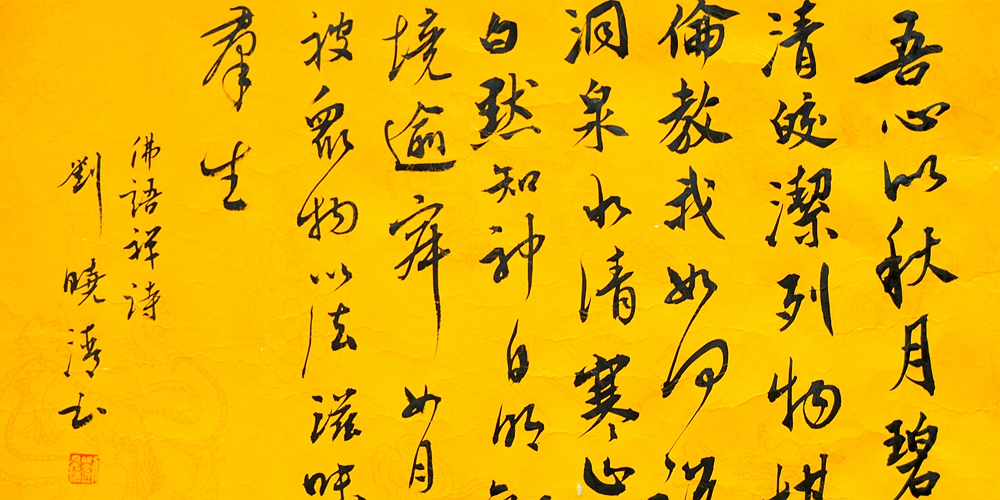 吾心以秋月碧
清皎潔列物
倫教我如何
洞泉水清寒山
白默知神自明
境逾 如月
被眾物以法滋味
羣生
佛語祥詩
劉曉清書